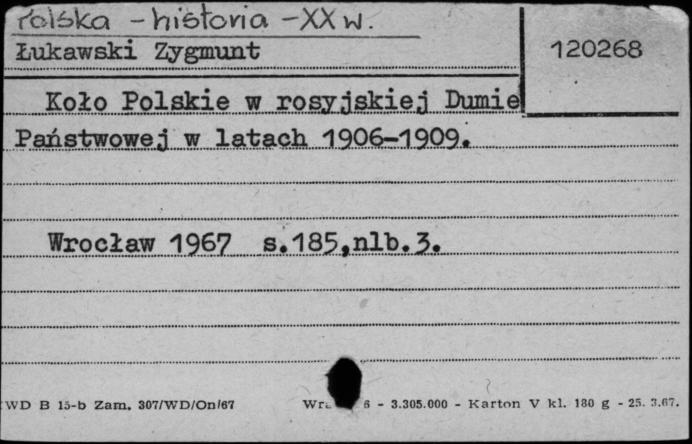 Polska - historia - XX w.
Łukawski Zygmunt
120268
Koło Polskie w rosyjskiej Dumie
Państwowej w latach 1906-1909.
Wrocław 1967 s.185,nlb.3.
WD B 15-b Zam. 307/WD/On/67
6 - 3.305.000 - Karton V kl. 180 g - 25. 3.67.